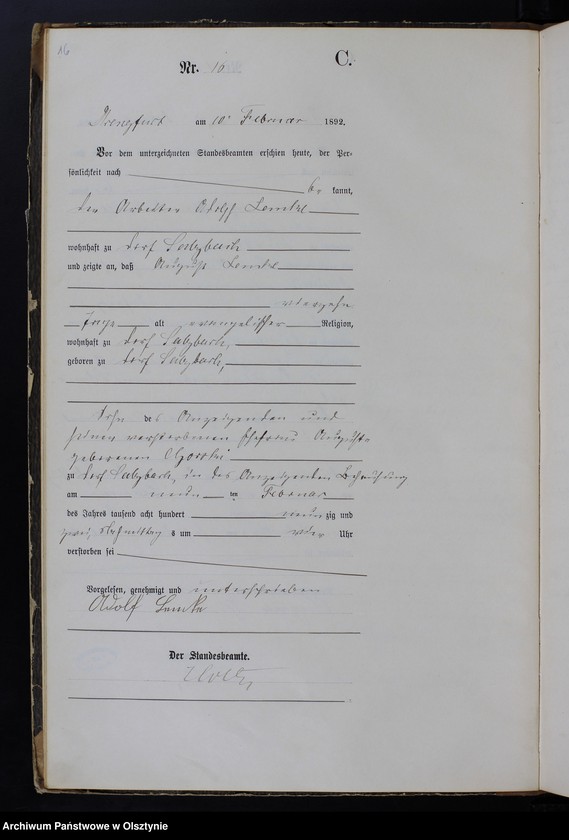 16
C.
Nr. 16
Drengfurt am 10. Februar 1892.
Vor dem unterzeichneten Standesbeamten erschien heute, der Per-
sönlichkeit nach
be kannt,
der Arbeiter Adolf Lemke
wohnhaft zu Dorf Salzbach
und zeigte an, daß August Lemke
vierzehn
Tage alt evangelischer Religion,
wohnhaft zu Dorf Salzbach,
geboren zu Dorf Salzbach,
Sohn des Anzeigenden und
seiner verstorbenen Ehefrau Auguste
geborenen
zu Dorf Salzbach, in des Anzeigenden Behausung
am neun ten Februar
des Jahres tausend acht hundert neun zig und
zwei, Nachmittag s um vier Uhr
verstorben sei
Vorgelesen, genehmigt und unterschrieben
Adolf Lemke
Der Standesbeamte.
Archiwum Państwowe w Olsztynie